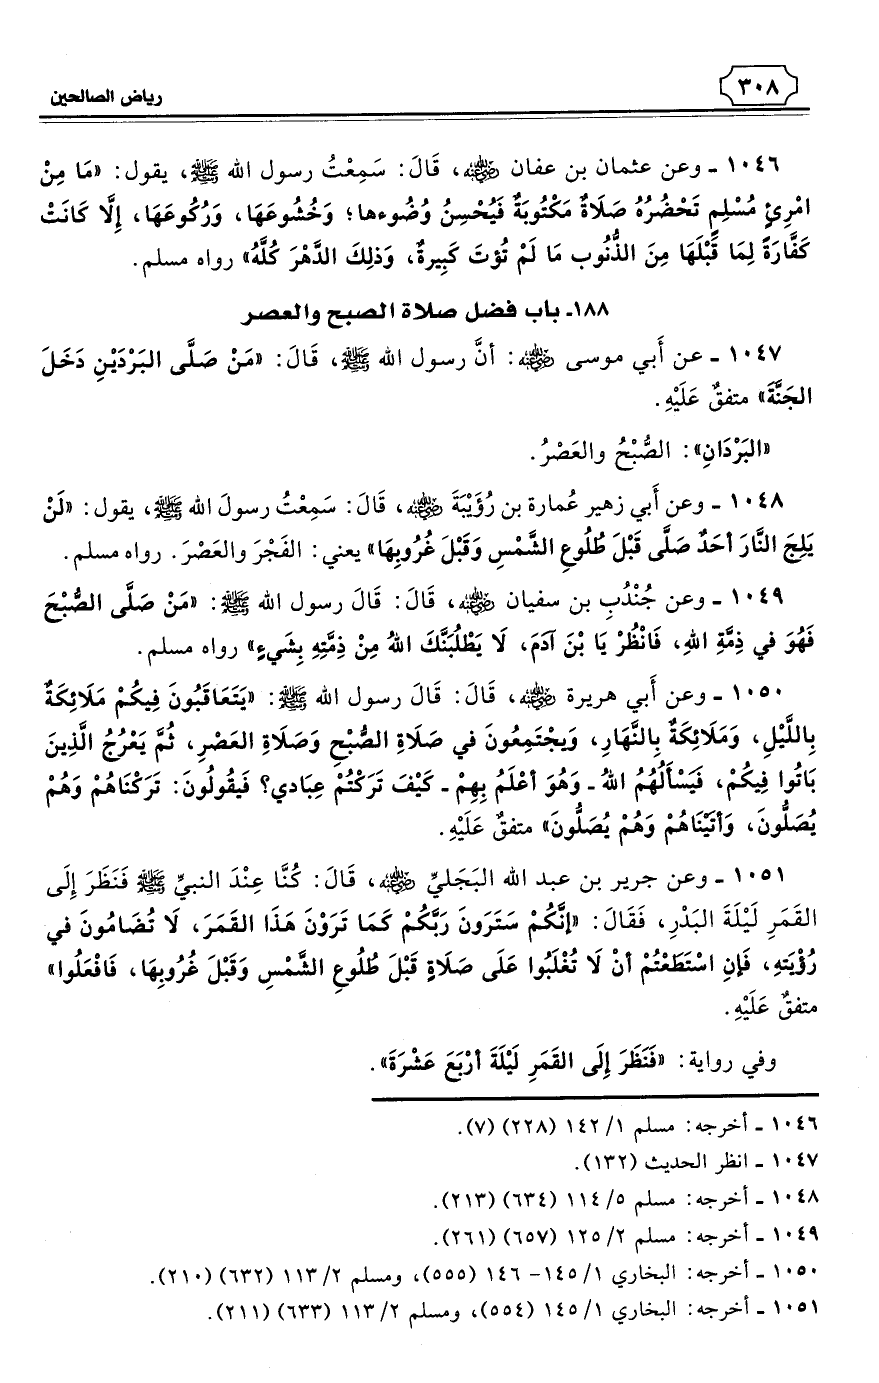 ٣٠٨
رياض الصالحين
١٠٤٦ ـ وعن عثمان بن عفان رضي الله عنه، قَالَ: سَمِعْتُ رسول الله ﷺ، يقول: «مَا مِنْ
امْرِئٍ مُسْلِمٍ تَحْضُرُهُ صَلَاةٌ مَكْتُوبَةٌ فَيُحْسِنُ وُضُوءها؛ وَخُشُوعَهَا، وَرُكُوعَهَا، إِلَّا كَانَتْ
كَفَّارَةً لِمَا قَبْلَهَا مِنَ الذُّنُوب مَا لَمْ تُؤتَ كَبِيرةٌ، وَذلِكَ الدَّهْرَ كُلَّهُ» رواه مسلم.
١٨٨ـ باب فضل صلاة الصبح والعصر
١٠٤٧ ـ عن أَبي موسى رضي الله عنه: أنَّ رسول الله ﷺ، قَالَ: «مَنْ صَلَّى البَرْدَيْنِ دَخَلَ
الجَنَّةَ» متفقٌ عَلَيْهِ.
«البَرْدَانِ»: الصُّبْحُ والعَصْرُ.
١٠٤٨ ـ وعن أَبي زهير عُمارة بن رُؤَيْبَةَ رضي الله عنه، قَالَ: سَمِعْتُ رسولَ الله ﷺ، يقول: «لَنْ
يَلِجَ النَّارَ أحَدٌ صَلَّى قَبْلَ طُلُوعِ الشَّمْسِ وَقَبْلَ غُرُوبِهَا» يعني: الفَجْرَ والعَصْرَ. رواه مسلم.
١٠٤٩ ـ وعن جُنْدُبِ بن سفيان رضي الله عنه، قَالَ: قَالَ رسول الله ﷺ: «مَنْ صَلَّى الصُّبْحَ
فَهُوَ في ذِمَّةِ اللهِ، فَانْظُرْ يَا بْنَ آدَمَ، لَا يَطْلُبَنَّكَ اللهُ مِنْ ذِمَّتِهِ بِشَيءٍ» رواه مسلم.
١٠٥٠ ـ وعن أَبي هريرة رضي الله عنه، قَالَ: قَالَ رسول الله ﷺ: «يَتَعَاقَبُونَ فِيكُمْ مَلَائِكَةٌ
بِاللَّيْلِ، وَمَلَائِكَةٌ بِالنَّهَارِ، وَيجْتَمِعُونَ في صَلَاةِ الصُّبْحِ وَصَلَاةِ العَصْرِ، ثُمَّ يَعْرُجُ الَّذِينَ
بَاتُوا فِيكُمْ، فَيَسْأَلُهُمُ اللهُ ـ وَهُوَ أعْلَمُ بِهِمْ ـ كَيْفَ تَرَكْتُمْ عِبَادي؟ فَيقُولُونَ: تَرَكْنَاهُمْ وَهُمْ
يُصَلُّونَ، وَأتَيْنَاهُمْ وَهُمْ يُصَلُّونَ» متفقٌ عَلَيْهِ.
١٠٥١ ـ وعن جرير بن عبد الله البَجَليِّ رضي الله عنه، قَالَ: كُنَّا عِنْدَ النبيِّ ﷺ فَنَظَرَ إِلَى
القَمَرِ لَيْلَةَ البَدْرِ، فَقَالَ: «إنَّكُمْ سَتَرَونَ رَبَّكُمْ كَمَا تَرَوْنَ هَذَا القَمَرَ، لَا تُضَامُونَ في
رُؤْيَتِهِ، فَإنِ اسْتَطَعْتُمْ أنْ لَا تُغْلَبُوا عَلَى صَلَاةٍ قَبْلَ طُلُوعِ الشَّمْسِ وَقَبْلَ غُرُوبِهَا، فَافْعَلُوا»
متفقٌ عَلَيْهِ.
وفي رواية: «فَنَظَرَ إِلَى القَمَرِ لَيْلَةَ أرْبَعَ عَشْرَةَ».
١٠٤٦ ـ أخرجه: مسلم ١/ ١٤٢ (٢٢٨) (٧).
١٠٤٧ ـ انظر الحديث (١٣٢).
١٠٤٨ ـ أخرجه: مسلم ٥/ ١١٤ (٦٣٤) (٢١٣).
١٠٤٩ ـ أخرجه: مسلم ٢/ ١٢٥ (٦٥٧) (٢٦١).
١٠٥٠ ـ أخرجه: البخاري ١/ ١٤٥- ١٤٦ (٥٥٥)، ومسلم ٢/ ١١٣ (٦٣٢) (٢١٠).
١٠٥١ ـ أخرجه: البخاري ١/ ١٤٥ (٥٥٤)، ومسلم ٢/ ١١٣ (٦٣٣) (٢١١).